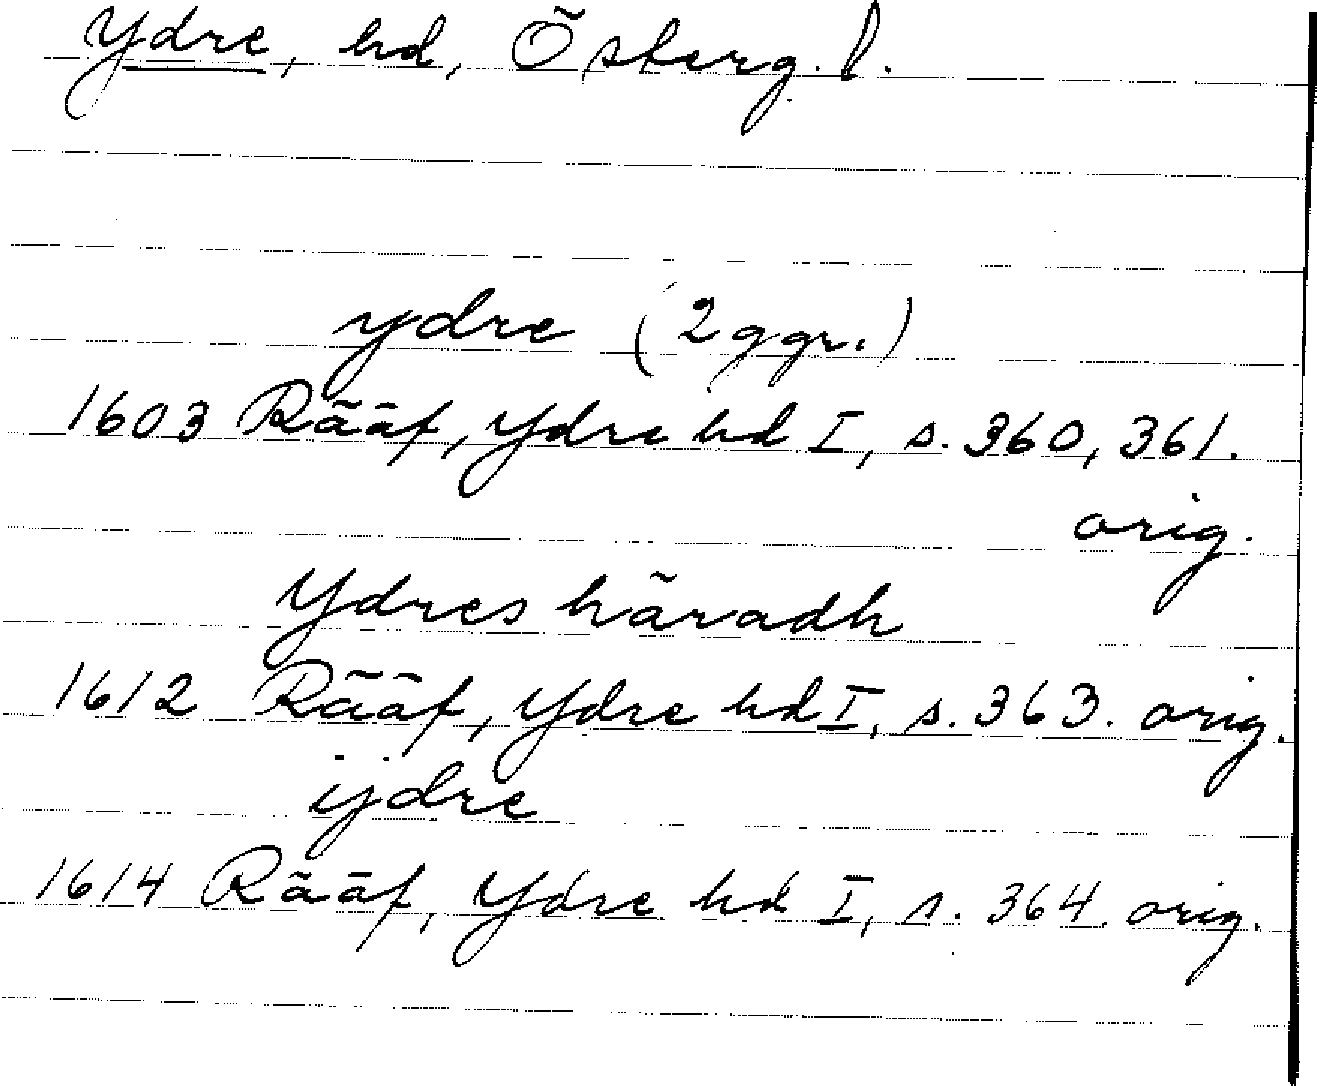 Ydre, hd, Österg. l.
ydre (2 ggr.)
1603 Rääf, Ydre hd I, s. 360, 361.
orig.
Ydres häradh
1612 Rääf, Ydre hd I, s. 363. orig.
ÿdre
1614 Rääf, Ydre hd I, s. 364. orig.